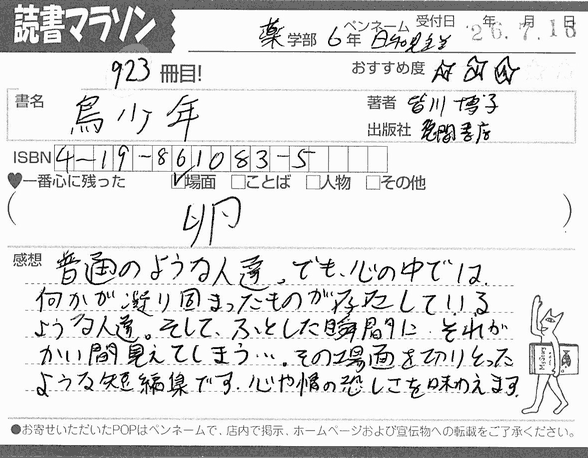 読書マラソン
薬学部 6年 ペンネーム 受付日 '26.7.16 年 月 日
923 冊目! おすすめ度 ☆☆☆
書名 鳥少年 著者 皆川博子
出版社
ISBN 4-19-861083-5
♥一番心に残った ☑場面 □ことば □人物 □その他
( 卵 )
感想 普通のような人達。でも、心の中では
何かが凝り固まったものが存在している
ような人達。そして、ふとした瞬間に、それが
かい間見えてしまう…。その場面を切りとった
ような短編集です。心や情の恐しさを味わえます。
●お寄せいただいたPOPはペンネームで、店内で掲示、ホームページおよび宣伝物への転載をご了承ください。